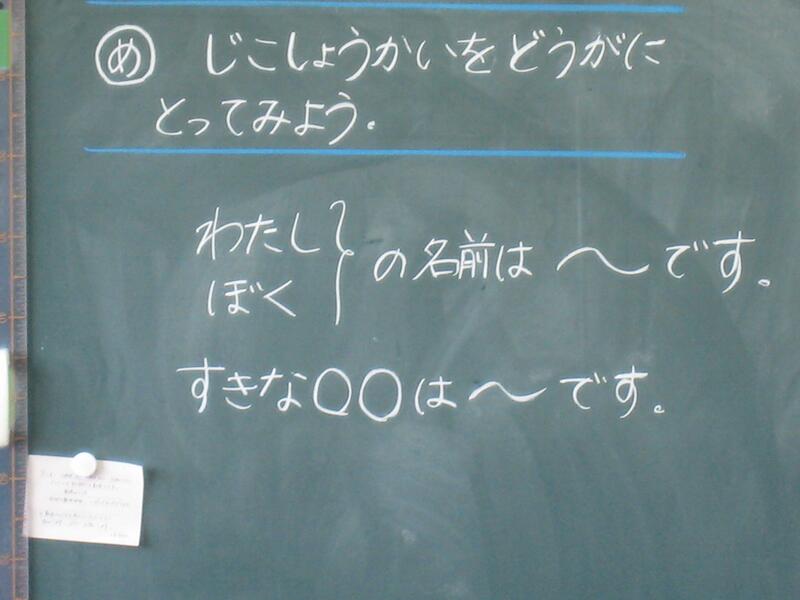 め じこしょうかいをどうがに
とってみよう.
わたし
ぼく
の名前は 〜です。
すきな○○は〜です。